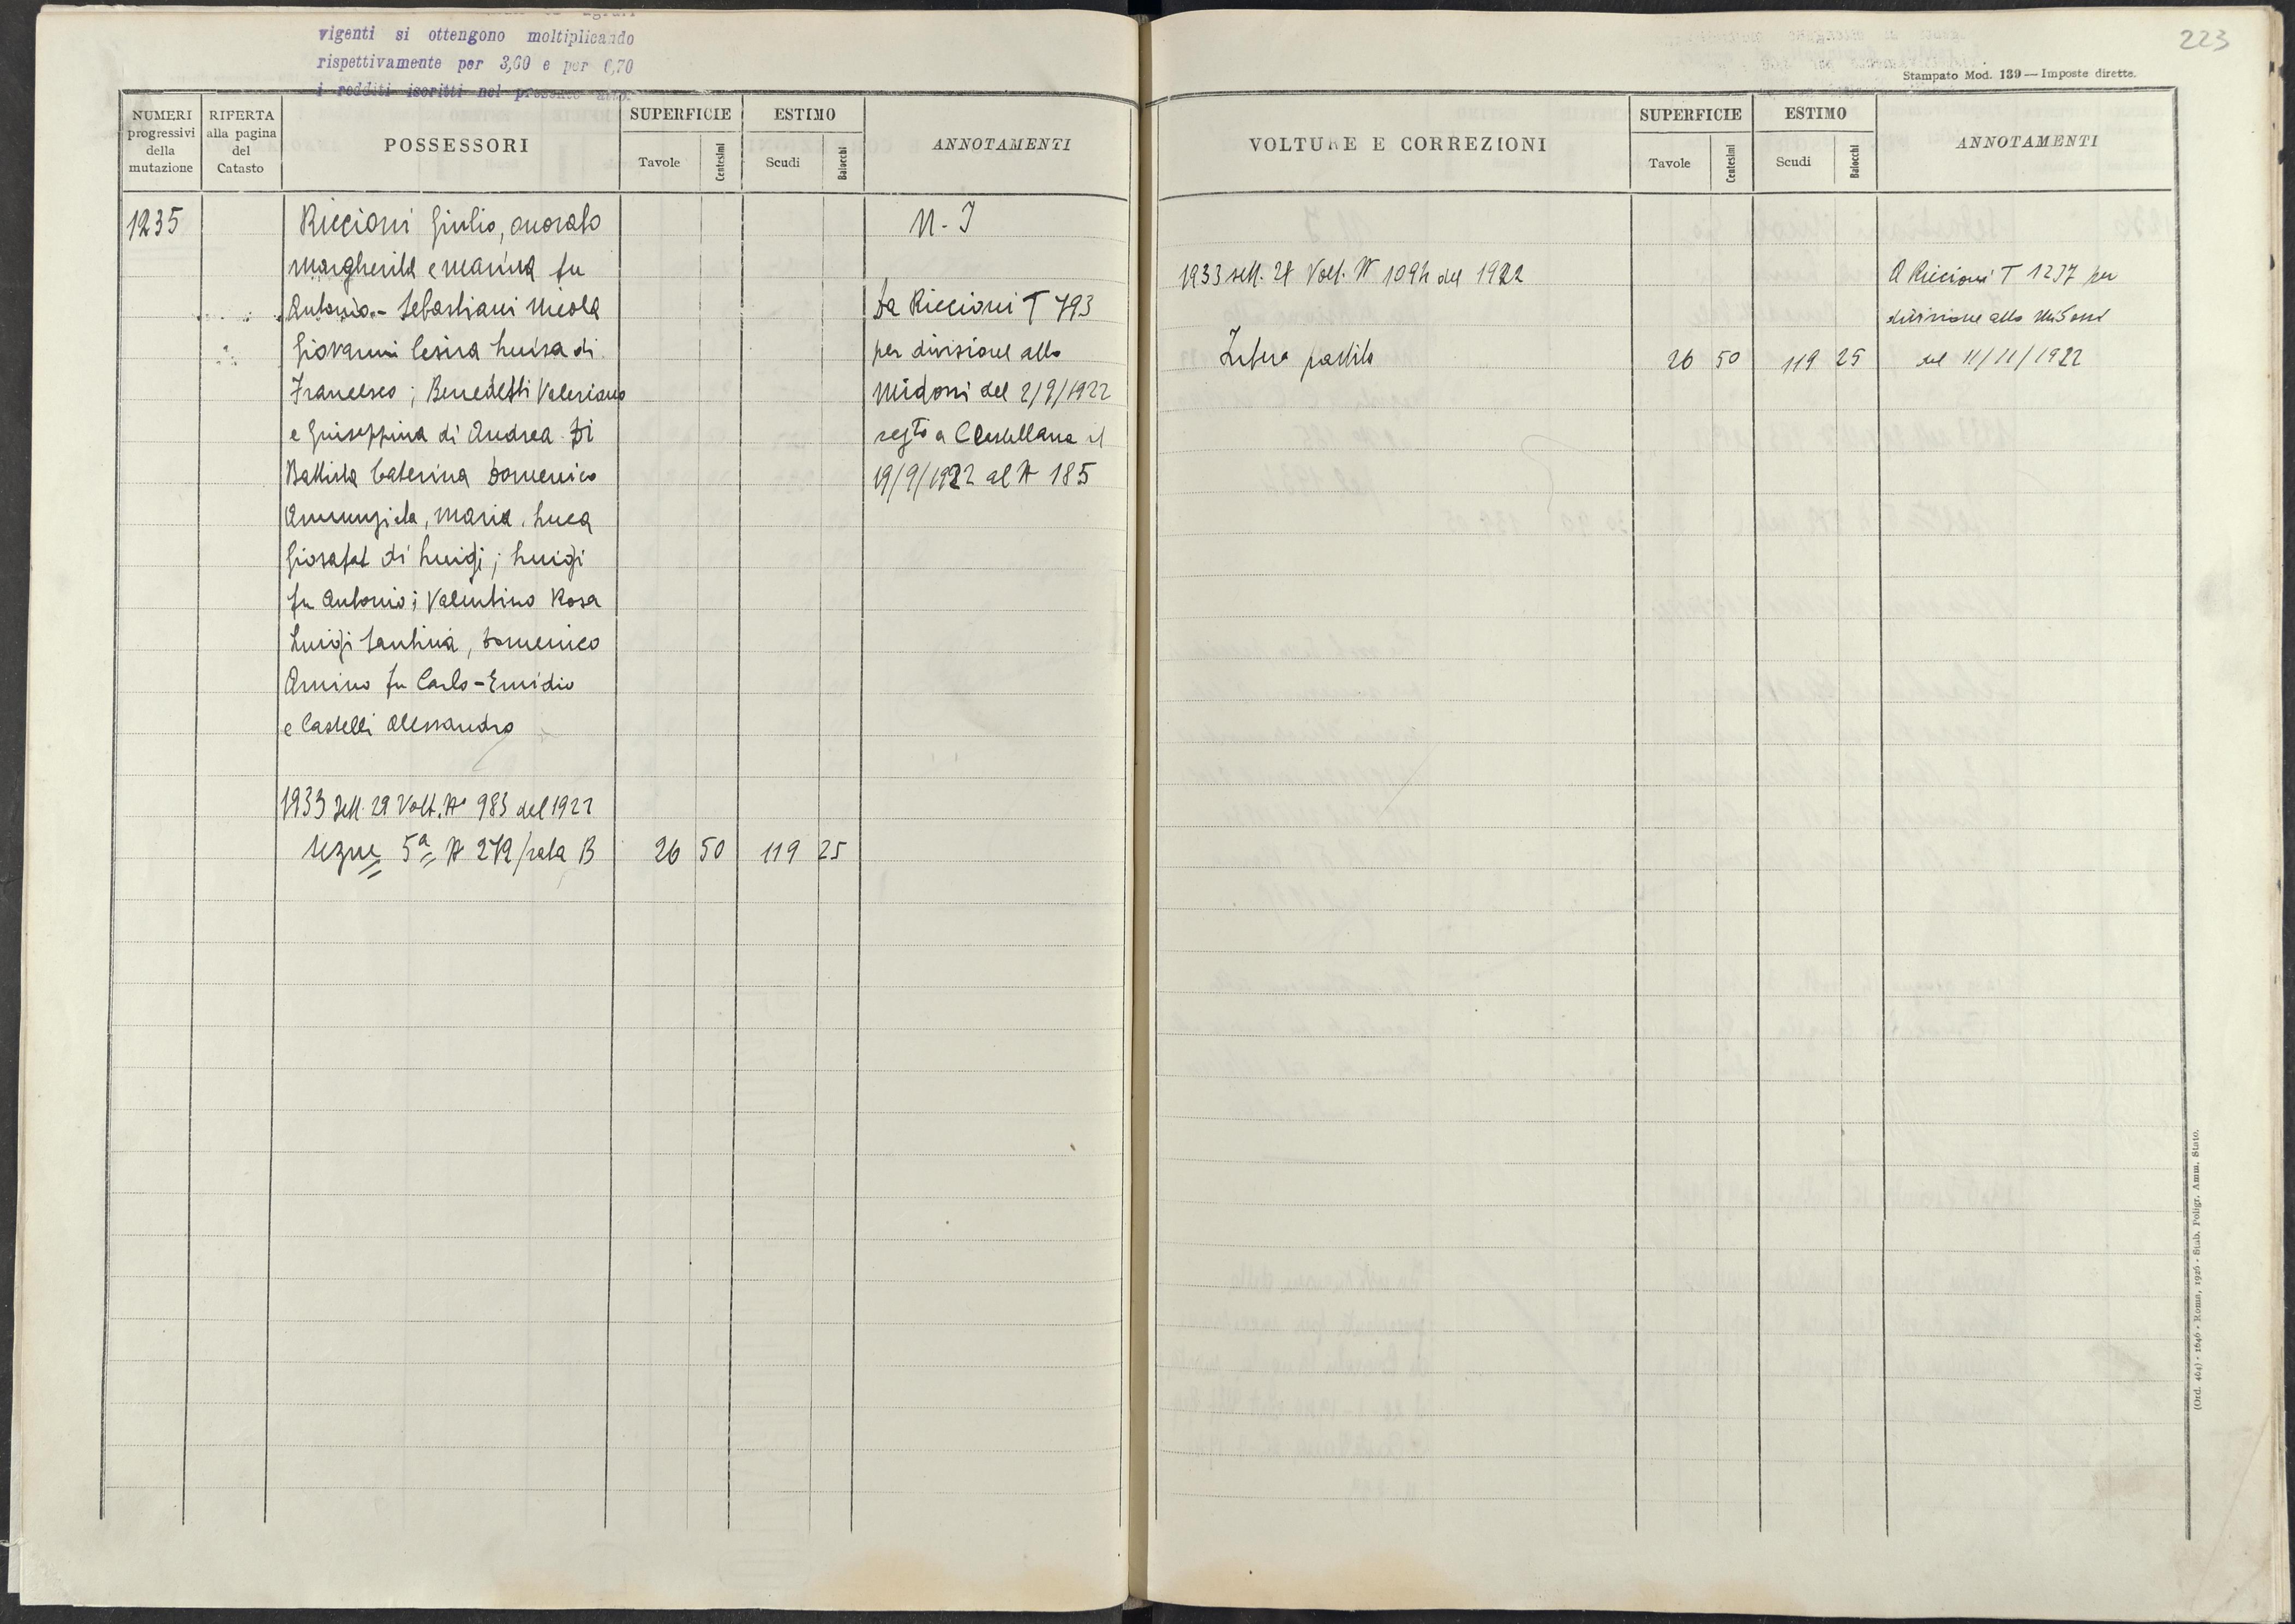 vigenti si ottengono moltiplicando
rispettivamente per 3,60 e per 6,70
i redditi iscritti nel presente atto.
NUMERI progressivi della mutazione
RIFERTA alla pagina del Catasto
POSSESSORI
SUPERFICIE
Tavole
Centesimi
ESTIMO
Scudi
Baiocchi
ANNOTAMENTI
1235
Riccioni Giulio, onorato
margherita e marina fu
Antonio - Sebastiani Nicola
Giovanni Cesira Luisa di
Francesco; Benedetti Valeriano
e Giuseppina di Andrea Di
Battista Caterina Domenico
Annunziata, Maria, Luca
Giosafat di Luigi; Luigi
fu Antonio; Valentino Rosa
Luigi Santina, Domenico
fu Carlo - Emidio
e Castelli Alessandro
1933 Sett. 29 Volt. N° 983 del 1922
segue 5a N 272/rata B 26 50 119 25
N. I
Da Riccioni T 793
per divisione atto
Midossi del 2/9/1922
regto a CCastellana il
19/9/1922 al N 185
223
Stampato Mod. 139 — Imposte dirette.
VOLTURE E CORREZIONI
SUPERFICIE
Tavole
Centesimi
ESTIMO
Scudi
Baiocchi
ANNOTAMENTI
1933 sett. 29 Volt. N 1094 del 1922
Intera partita 26 50 119 25
A Riccioni T 1237 per
divisione atto Midossi
del 11/11/1922
(Ord. 464) - 1646 - Roma, 1926 - Stab. Poligr. Amm. Stato.